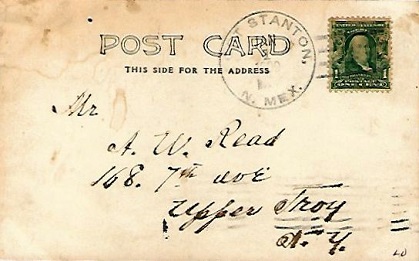 POST CARD
THIS SIDE FOR THE ADDRESS
STANTON,
N. MEX.
1
ONE CENT
Mr
A. W. Read
168. 7th ave
Upper Troy
N. Y.